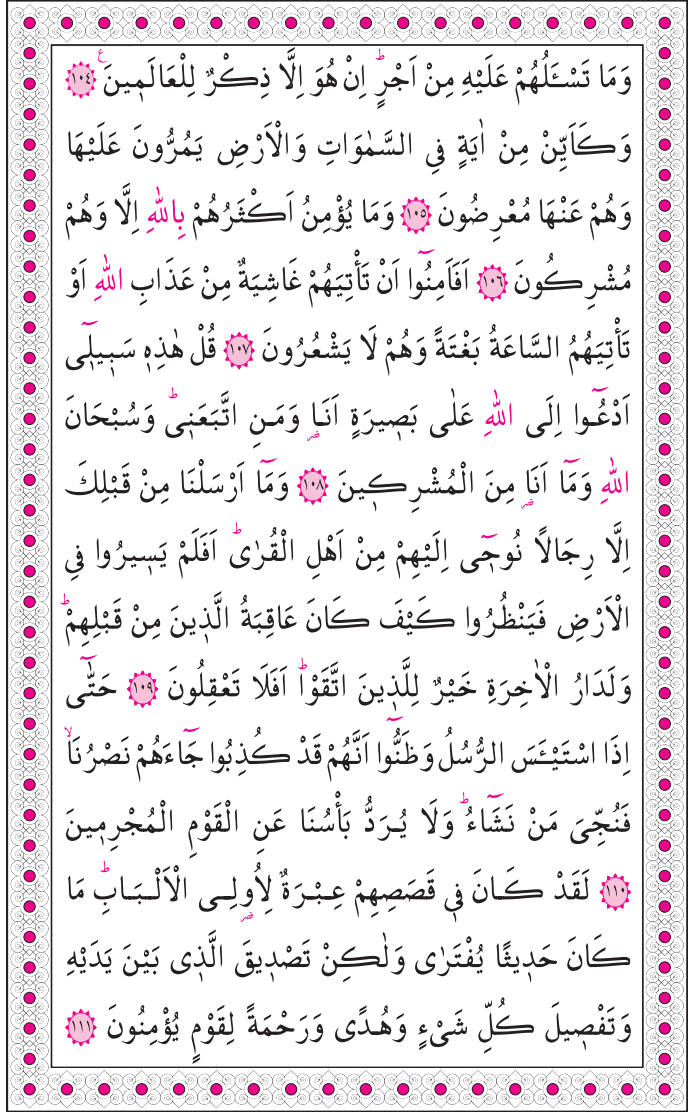 وَمَا تَسْـَٔلُهُمْ عَلَيْهِ مِنْ اَجْرٍۜ اِنْ هُوَ اِلَّا ذِكْرٌ لِلْعَالَم۪ينَ۟ ﴿١٠٤﴾
وَكَاَيِّنْ مِنْ اٰيَةٍ فِي السَّمٰوَاتِ وَالْاَرْضِ يَمُرُّونَ عَلَيْهَا
وَهُمْ عَنْهَا مُعْرِضُونَ ﴿١٠٥﴾ وَمَا يُؤْمِنُ اَكْثَرُهُمْ بِاللّٰهِ اِلَّا وَهُمْ
مُشْرِكُونَ ﴿١٠٦﴾ اَفَاَمِنُٓوا اَنْ تَأْتِيَهُمْ غَاشِيَةٌ مِنْ عَذَابِ اللّٰهِ اَوْ
تَأْتِيَهُمُ السَّاعَةُ بَغْتَةً وَهُمْ لَا يَشْعُرُونَ ﴿١٠٧﴾ قُلْ هٰذِه۪ سَب۪يل۪ٓي
اَدْعُٓوا اِلَى اللّٰهِ عَلٰى بَص۪يرَةٍ اَنَا۬ وَمَنِ اتَّبَعَن۪يۜ وَسُبْحَانَ
اللّٰهِ وَمَٓا اَنَا۬ مِنَ الْمُشْرِك۪ينَ ﴿١٠٨﴾ وَمَٓا اَرْسَلْنَا مِنْ قَبْلِكَ
اِلَّا رِجَالًا نُوح۪ٓي اِلَيْهِمْ مِنْ اَهْلِ الْقُرٰىۜ اَفَلَمْ يَس۪يرُوا فِي
الْاَرْضِ فَيَنْظُرُوا كَيْفَ كَانَ عَاقِبَةُ الَّذ۪ينَ مِنْ قَبْلِهِمْۜ
وَلَدَارُ الْاٰخِرَةِ خَيْرٌ لِلَّذ۪ينَ اتَّقَوْاۜ اَفَلَا تَعْقِلُونَ ﴿١٠٩﴾ حَتّٰٓى
اِذَا اسْتَيْـَٔسَ الرُّسُلُ وَظَنُّٓوا اَنَّهُمْ قَدْ كُذِبُوا جَٓاءَهُمْ نَصْرُنَاۙ
فَنُجِّيَ مَنْ نَشَٓاءُۜ وَلَا يُرَدُّ بَأْسُنَا عَنِ الْقَوْمِ الْمُجْرِم۪ينَ
﴿١١٠﴾ لَقَدْ كَانَ ف۪ي قَصَصِهِمْ عِبْرَةٌ لِاُو۬لِي الْاَلْبَابِۜ مَا
كَانَ حَد۪يثًا يُفْتَرٰى وَلٰكِنْ تَصْد۪يقَ الَّذ۪ي بَيْنَ يَدَيْهِ
وَتَفْص۪يلَ كُلِّ شَيْءٍ وَهُدًى وَرَحْمَةً لِقَوْمٍ يُؤْمِنُونَ ﴿١١١﴾